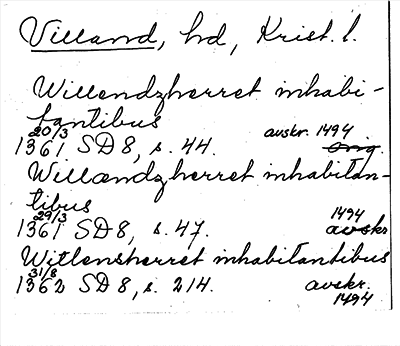 Villand, hd, Krist. l.
Willendzherret inhabi-
tantibus
20/3 avskr. 1494
1361 SD 8, s. 44. Orig.
Willændzherret inhabitan-
tibus
29/3 1494
1361 SD 8, s. 47. avskr
Witlensherret inhabitantibus
31/8
1362 SD 8, s. 214. avskr.
1494